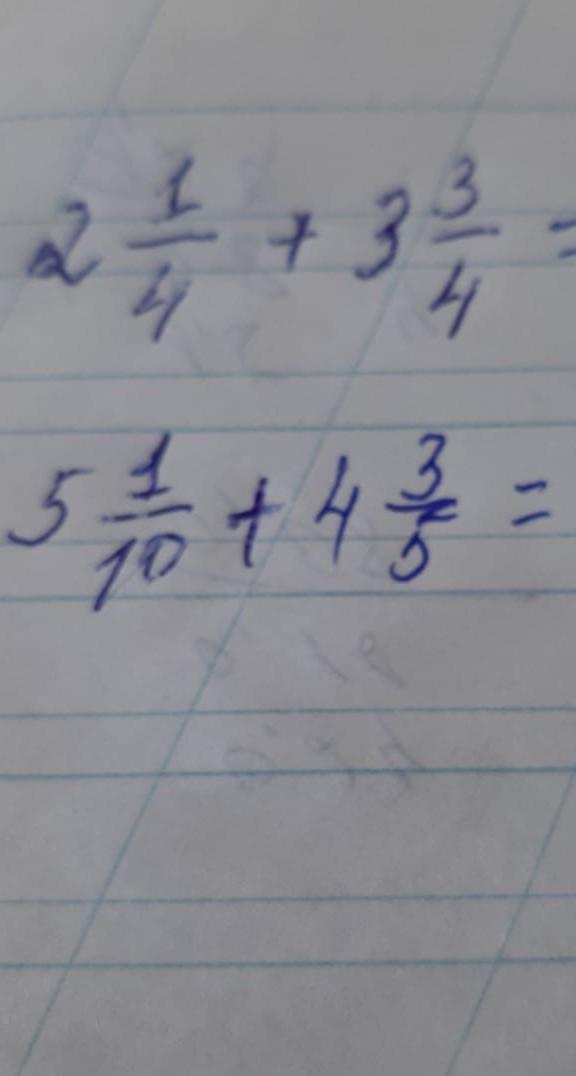 2 1/4 + 3 3/4 =
5 1/10 + 4 3/5 =